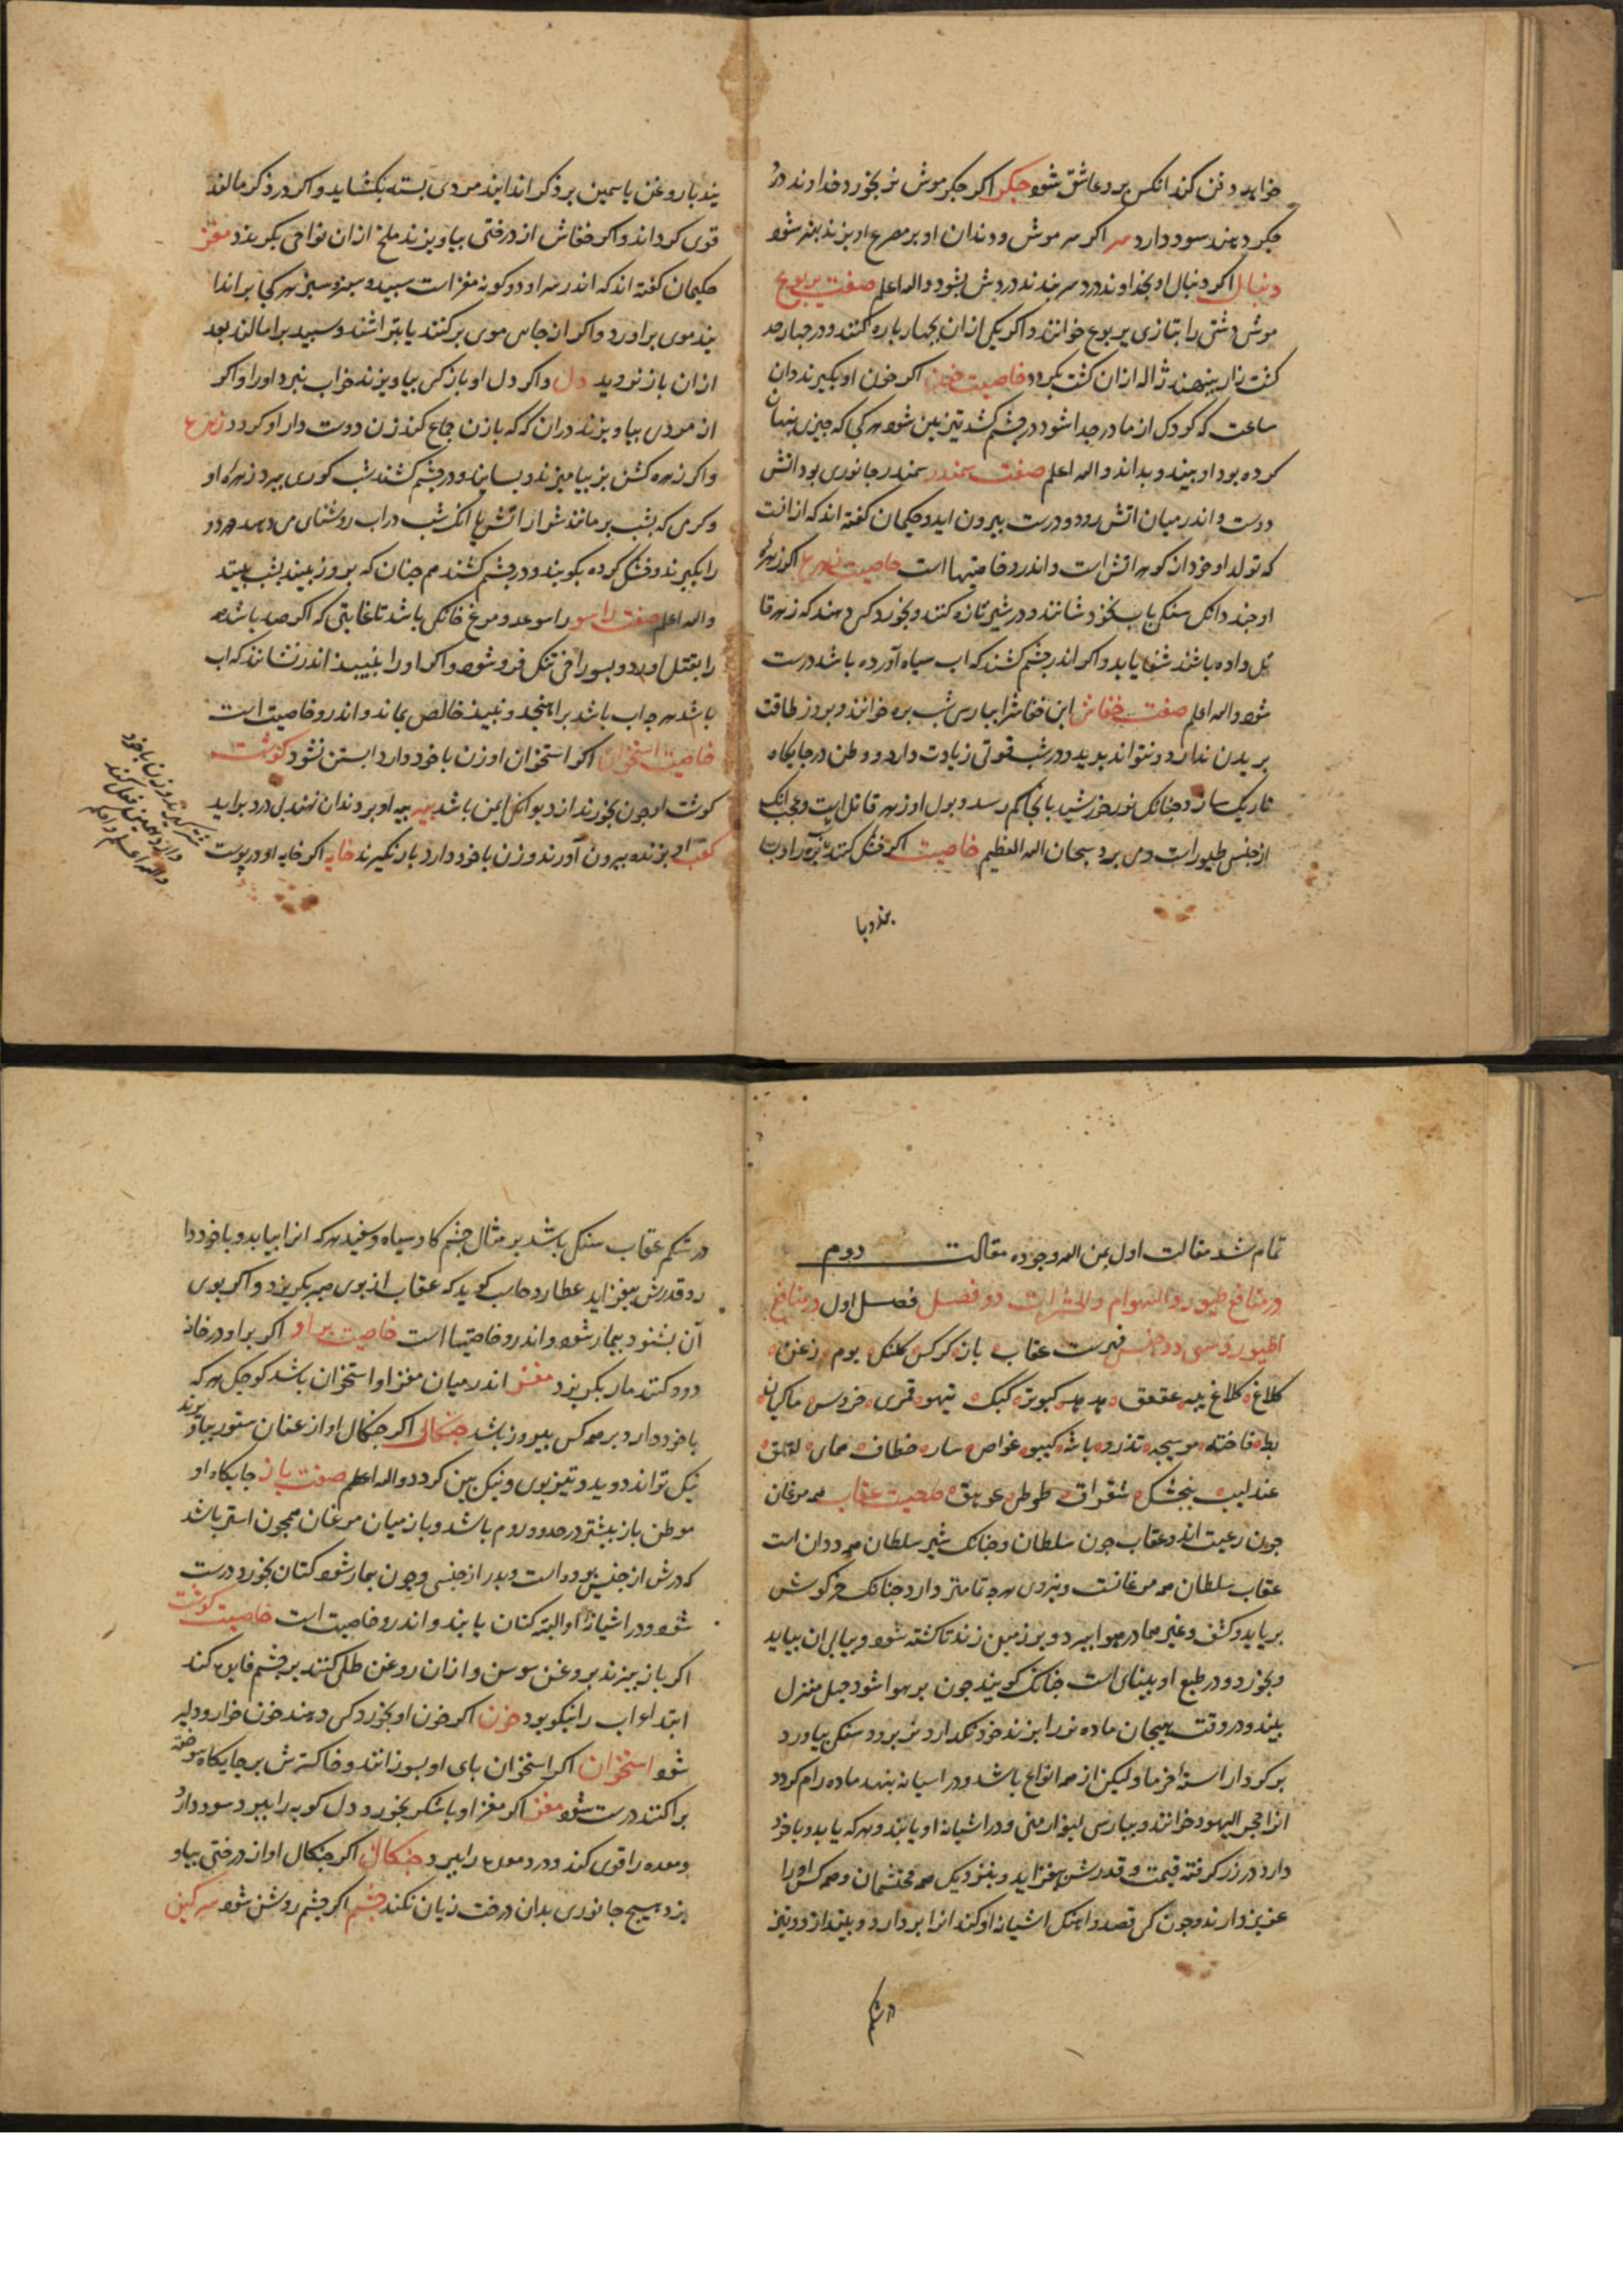 خواهد دفن کند انکس برو عاشق شود جکر اکر جکر موش نر بخورد خداوند درد
جکر دهند سود دارد سر اکر سر موش و دندان او بر مصروع اویزند بهتر شود
دنبال اکر دنبال او بخداوند درد سر بندند دردش بشود والله اعلم صفت یربوع
موش دشتی را بتازی یربوع خوانند و اکر یکی ازان بچهار پاره کنند و در چهار حد
کشت زار بنهند ژاله ازان کشت بکردد خاصیت خون اکر خون او بکیرند دران
ساعت که کودک از مادر جدا شود در چشم کشد تیزبین شود هر کی که چیزی پنهان
کرده بود او ببیند و بداند والله اعلم صفت سمندر سمندر جانوری بود اتش
دوست و اندر میان اتش رود و درست بیرون اید و حکیمان کفته اند که از انست
که تولد او خود از کوهر اتش است و اندرو خاصیتها است خاصیت زهره اکر زهره
او چند دانک سنک باب بخود شانند و در شیر تازه کنند و بخورد کس دهند که زهر قا
تل داده باشند شفا یابد و اکر اندر چشم کشند که اب سیاه آورده باشد درست
شود والله اعلم صفت خفاش این خفاش را بپارسی شب پره خوانند و بروز طاقت
پریدن ندارد و نتواند پرید و در شب قوتی زیادت دارد و وطن در جایکاه
تاریک سازد چنانک نور خورشید بانجا کم رسد و بول او زهر قاتل است و عجب انک
از جنس طیور است و می پرد سبحان الله العظیم خاصیت اکر خشک کنند
بند و با
یند با روغن یاسمین بر ذکر اندایند مردی بسته بکشاید و اکر در ذکر مالند
قوی کرداند و اکر خفاش از درختی بیاویزند ملخ ازان نواحی بکریزد مغز
حکیمان کفته اند که اندر سر او دو کونه مغز است سپید و سبز و سبز هر کجا براندا
یند موی براورد و اکر از جایی موی برکنند یا بتراشند و سپید برا مالند بعد
ازان باز نروید دل و اکر دل او باز کس بیاویزند خواب نبرد اورا و اکر
از مردی بیاویزند دران که که با زن جماع کند زن دوست دار او کردد زهره
واکر زهره کشن بز بیامیزند و بسایند و در چشم کشند شب کوری ببرد زهره او
و کرمی که بشب بر مانند شرار اتش یا انک شب دراب روشنای می دهد هر دو
را بکیرند و خشک کرده بکوبند و در چشم کشند هم چنان که بروز بیند بشب ببیند
والله اعلم صفت راسو راسو عدو مرغ خانکی باشد تا غایتی که اکر صد باشد همه
را بقتل اورد و بسوراخی تنک فرو شود و اکر اورا بنبیذ اندر نشانند که اب
باشد هر چه اب باشد براهنجد و نبیذ خالص بماند و اندرو خاصیت است
خاصیت استخوان اکر استخوان او زن با خود دارد ابستن نشود کوشت
کوشت او چون بخورند از دیو ایمن باشد پیه پیه او بر دندان نهند بی درد براید
کعب او بزنده بیرون آورند و زن با خود دارد بار نکیرند خایه اکر خایه او در پوست
والله اعلم
تمام شد مقالت اول بمن الله وجوده مقالت دوم
در منافع طیور والهوام والحشرات دو فصل فصل اول در منافع
الطیور و سی و دو جنس فهرست عقاب باز کرکس کلنک بوم زغن
کلاغ کلاغ پیه عقعق هدهد کبوتر کبک تیهو قمری خروس ماکیان
بط فاخته موسیجه تذرو باشه کیبو غواص سار خطاف همای لقلق
عندلیب بنجشک شقراق طوطی عویق خاصیت عقاب همه مرغان
چون رعیت اند و عقاب چون سلطان و چنانک شیر سلطان همه ددان است
عقاب سلطان همه مرغانست و نیروی هرچه تمامتر دارد چنانک خرکوش
برباید و کشف و غیر هما در هوا ببرد و بر زمین زند تا کشته شود و بپای ان بیاید
و بخورد و در طبع او بینای است چنانک کویند چون بر هوا شود چهل منزل
ببیند و در وقت هیجان ماده نر را بزند خود نکدارد نر برود و سنکی بیاورد
بر کردار استهٔ خرما و لیکن از همه انواع باشد و در اشیانه بنهد ماده رام کردد
انرا حجر الیهود خوانند و بپارسی لیوز ارمنی و در اشیانه او یابند و هرکه یابد و با خود
دارد در زر کرفته قیمت و قدرش بیفزاید و بنزدیک همه محتشمان و همه کس اورا
عزیز دارند و چون کس قصد و اهنک اشیانه او کند انرا بردارد و بیندازد و نیز
در شکم
در شکم عقاب سنکی باشد بر مثال چشم کاو سیاه و سفید هرکه انرا بیابد و با خود دا
رد قدرش بیفزاید عطارد حاسب کوید که عقاب از بوی صبر بکریزد و اکر بوی
آن بشنود بیمار شود و اندرو خاصیتها است خاصیت پر او اکر پر او در خانه
دود کنند مار بکریزد مغز اندر میان مغز او استخوان باشد کوچک هرکه
با خود دارد بر همه کس پیروز باشد چنکال اکر چنکال او از عنان ستور بیاویزند
نیک تواند دوید و تیز بوی و نیک بین کردد والله اعلم صفت باز جایکاه او
موطن باز بیشتر در حدود روم باشد و باز میان مرغان همچون استر باشد
که درش از جنسی بوده است و پدر از جنسی و چون بیمار شود کتان بخورد درست
شود و در اشیانه او البته کتان یابند و اندرو خاصیت است خاصیت کوشت
اکر باز بپزند بروغن سوسن و ازان روغن طلی کنند بر چشم فایده کند
ابتداء اب را نیکو بود خون اکر خون او بخورد کس دهند خون خوار و دلیر
شود استخوان اکر استخوان پای او بسوزانند و خاکسترش بر جایکاه سوخته
پراکنند درست شود مغز اکر مغز او با شکر بخورد و دل کوبه را ببرد سود دارد
و معده را قوی کند و درد معده را ببرد چنکال اکر چنکال او از درختی بیاو
یزد هیچ جانوری بدان درخت زیان نکند چشم اکر چشم روشن شود سرکین